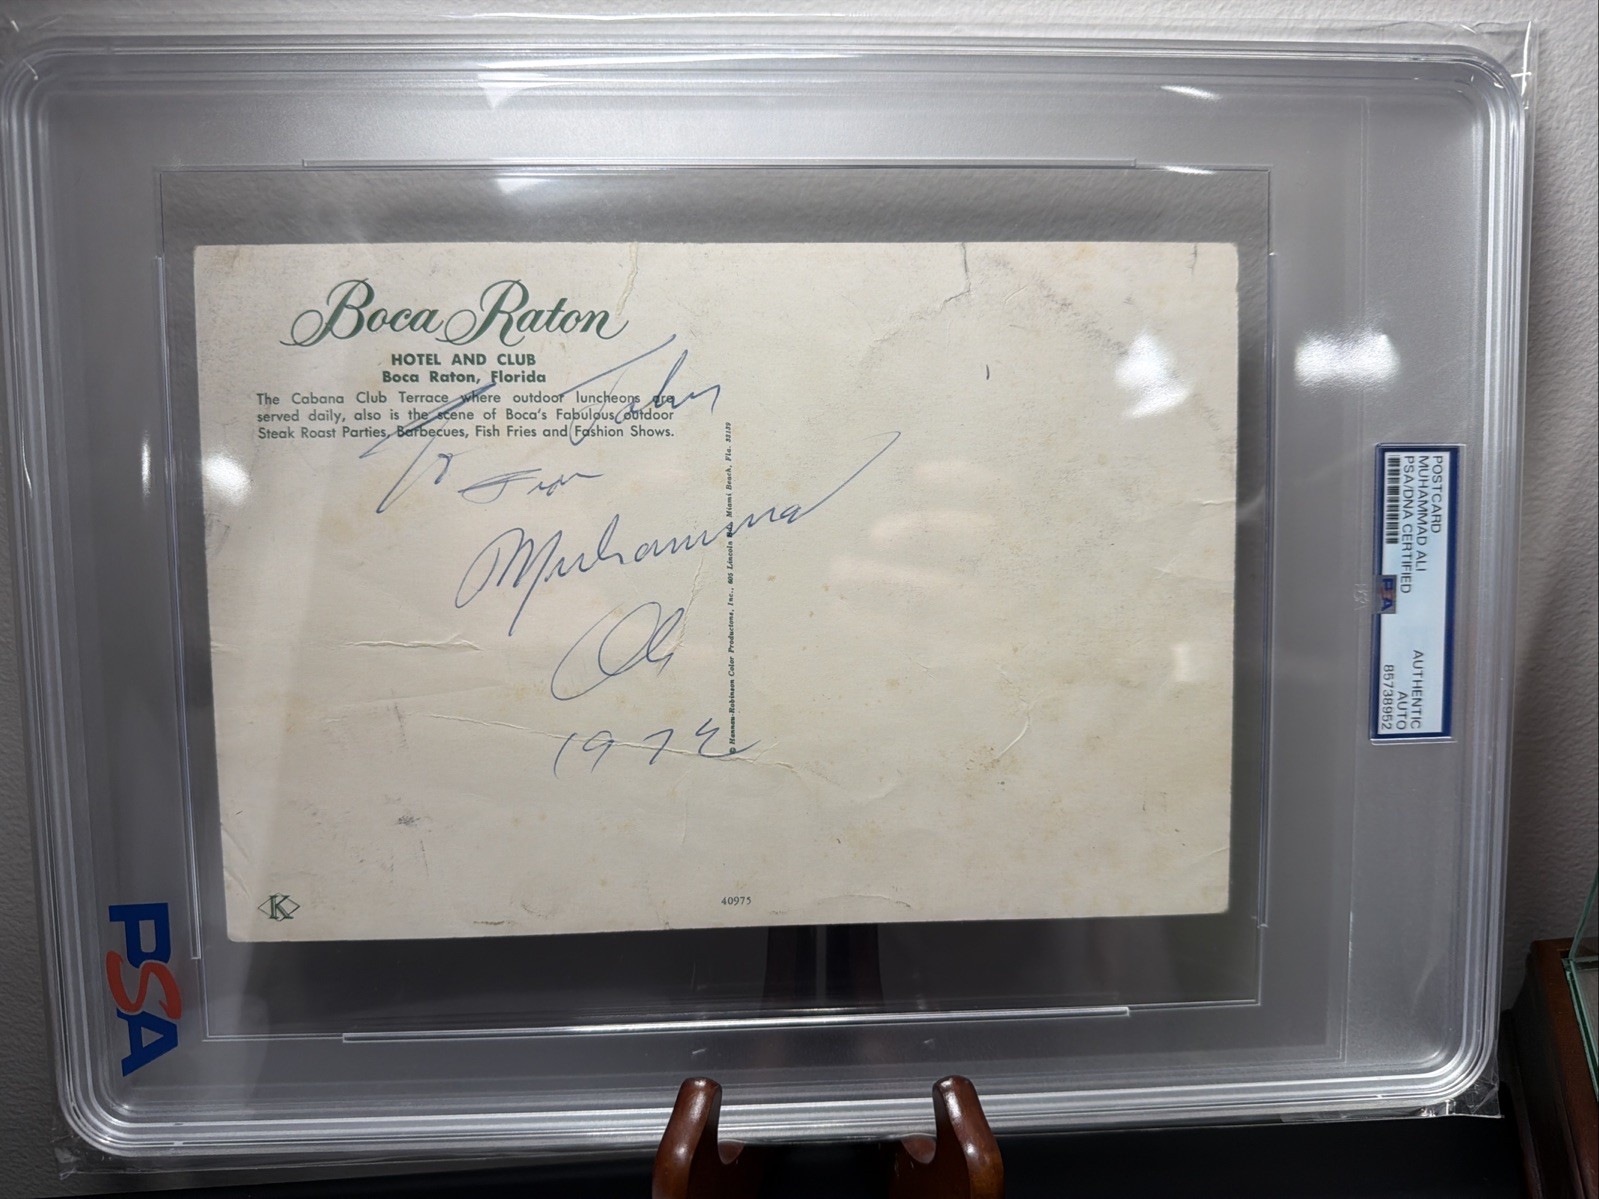 Boca Raton
HOTEL AND CLUB
Boca Raton, Florida
The Cabana Club Terrace where outdoor luncheons are
served daily, also is the scene of Boca's Fabulous outdoor
Steak Roast Parties, Barbecues, Fish Fries and Fashion Shows.
To
From
Muhammad
Ali
1972
© Hannau-Robinson Color Productions, Inc., 605 Lincoln Rd., Miami Beach, Fla. 33139
K
40975
PSA
POSTCARD
MUHAMMAD ALI
PSA/DNA CERTIFIED
PSA
AUTHENTIC
AUTO
85738952